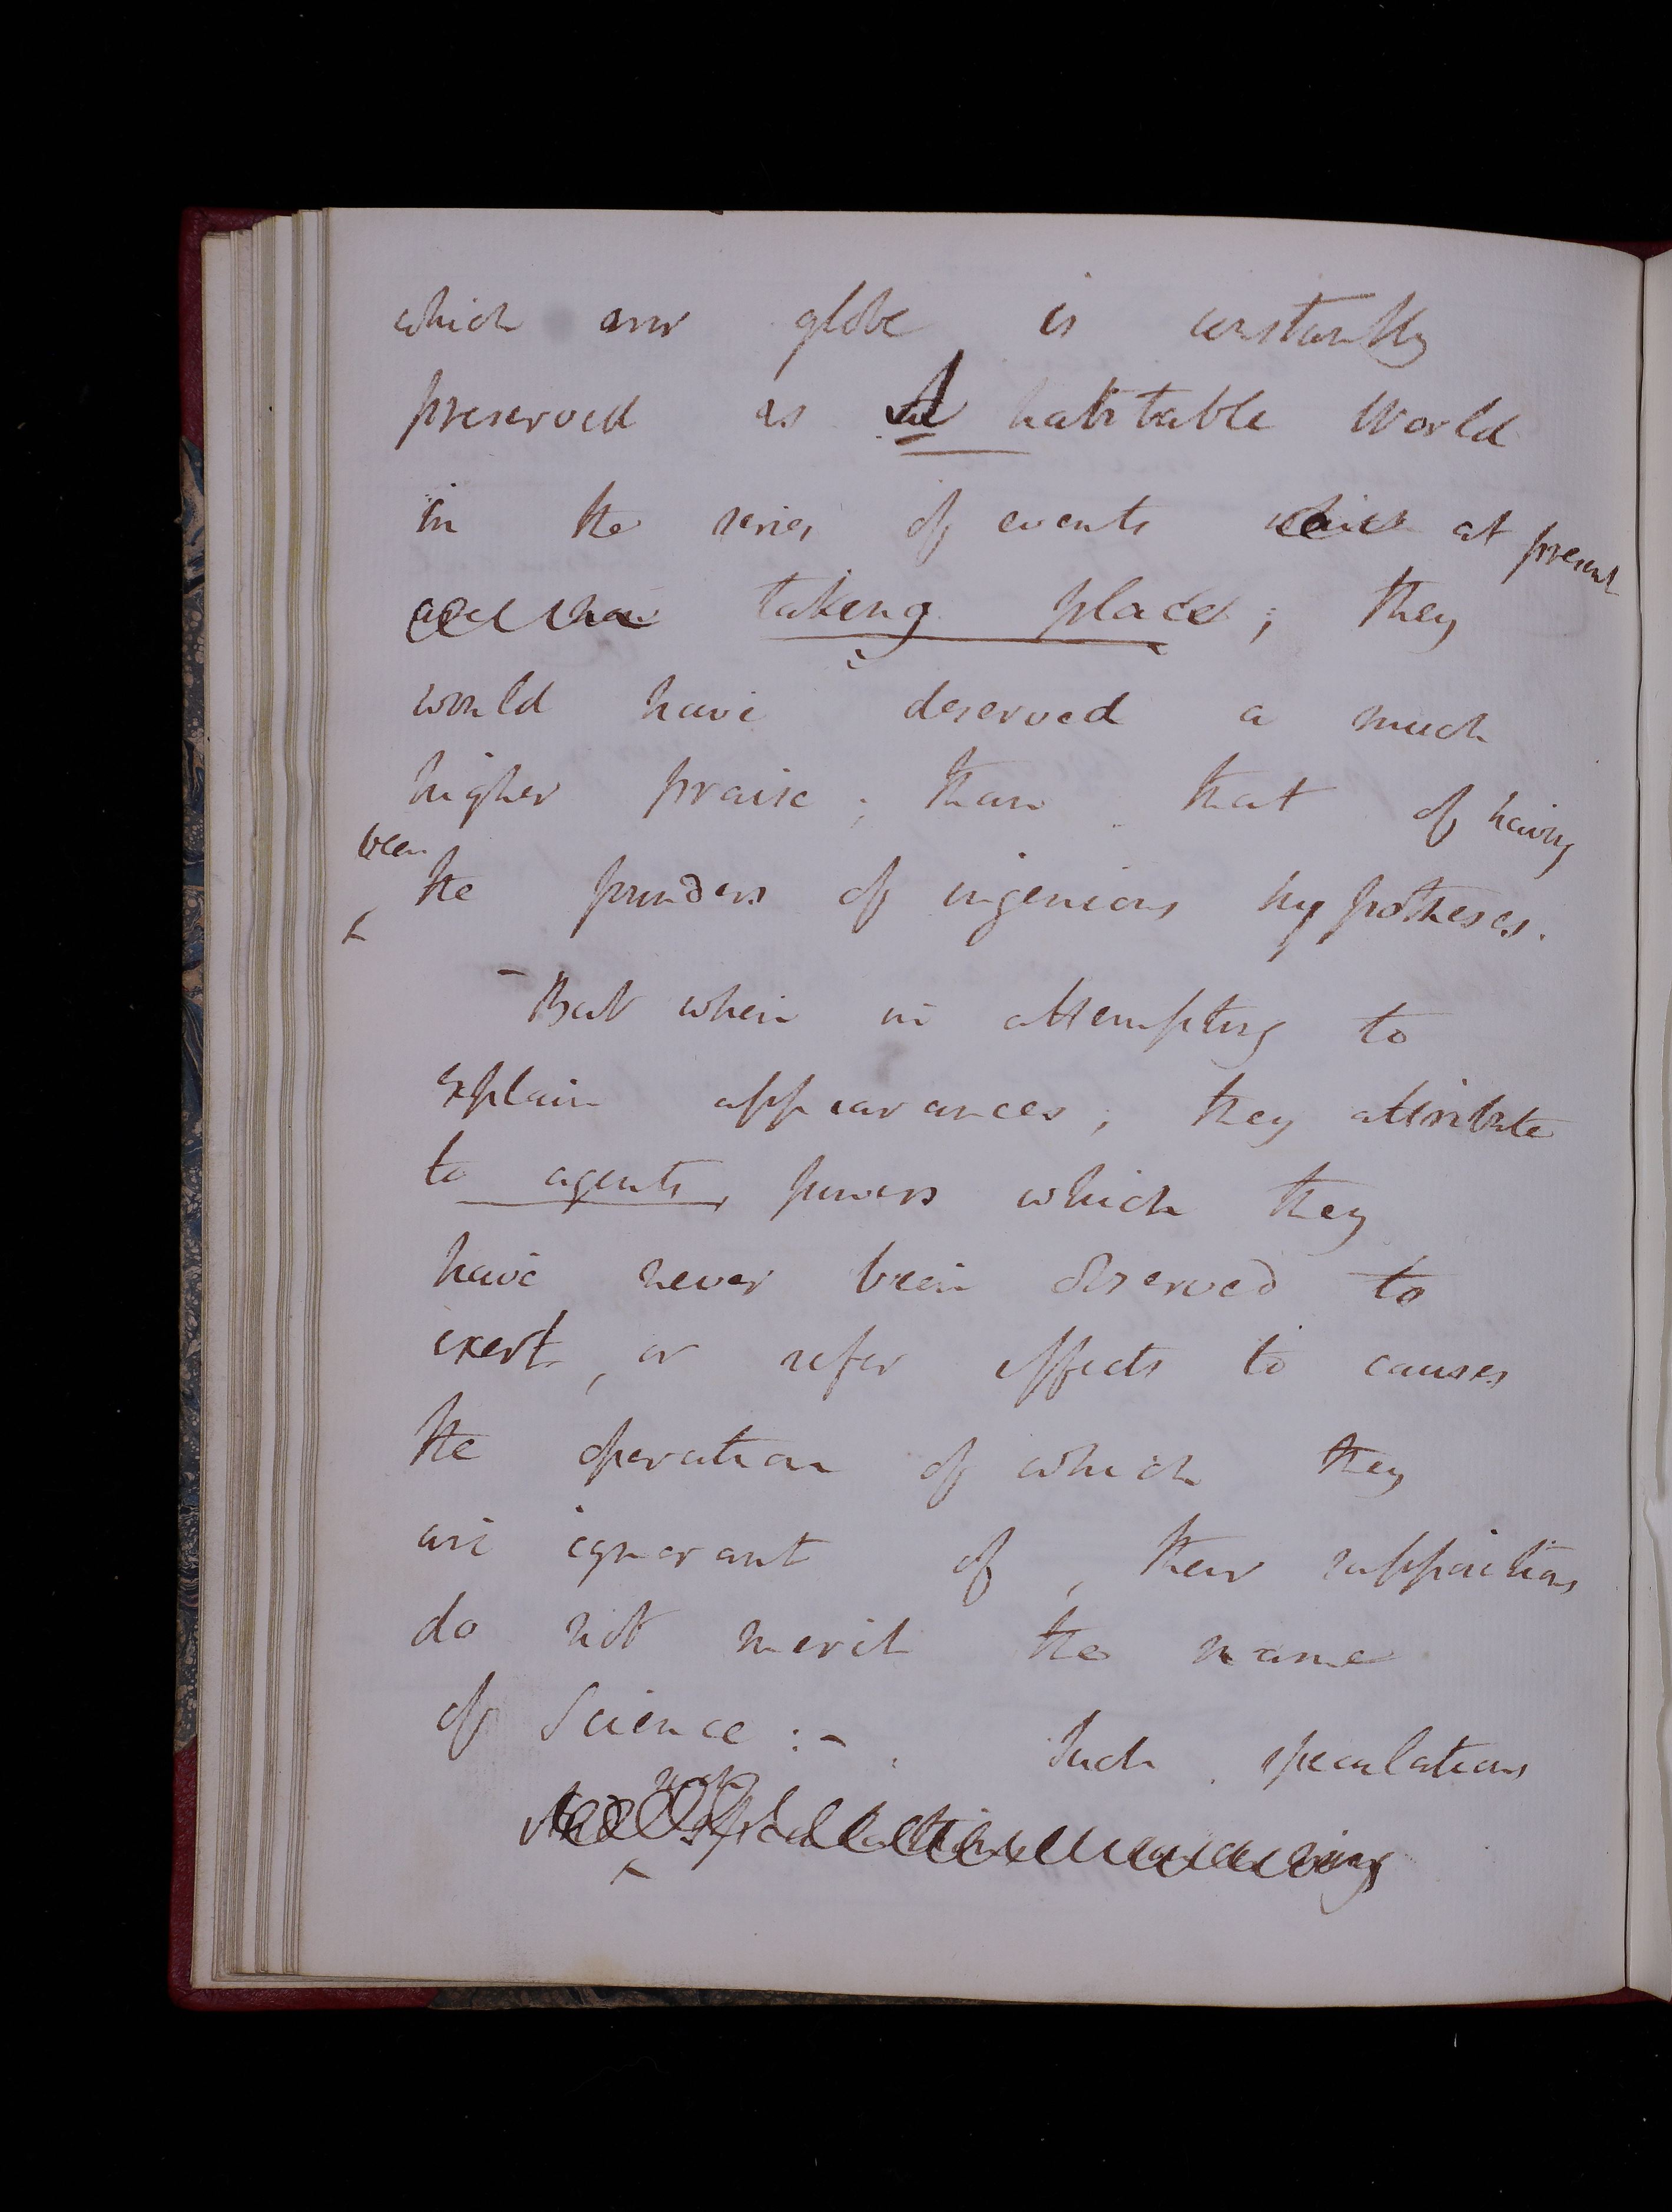 which our globe is constantly
preserved as A habitable World
in the series of events at present
taking place; they
would have deserved a much
higher praise, than that of having
been
the founders of ingenious hypotheses.
- But when in attempting to
explain appearances, they attribute
to agents, powers which they
have never been observed to
exert, or refer effects to causes
the operation of which they
are ignorant of, their suppositions
do not merit the name
of Science :- Such speculations